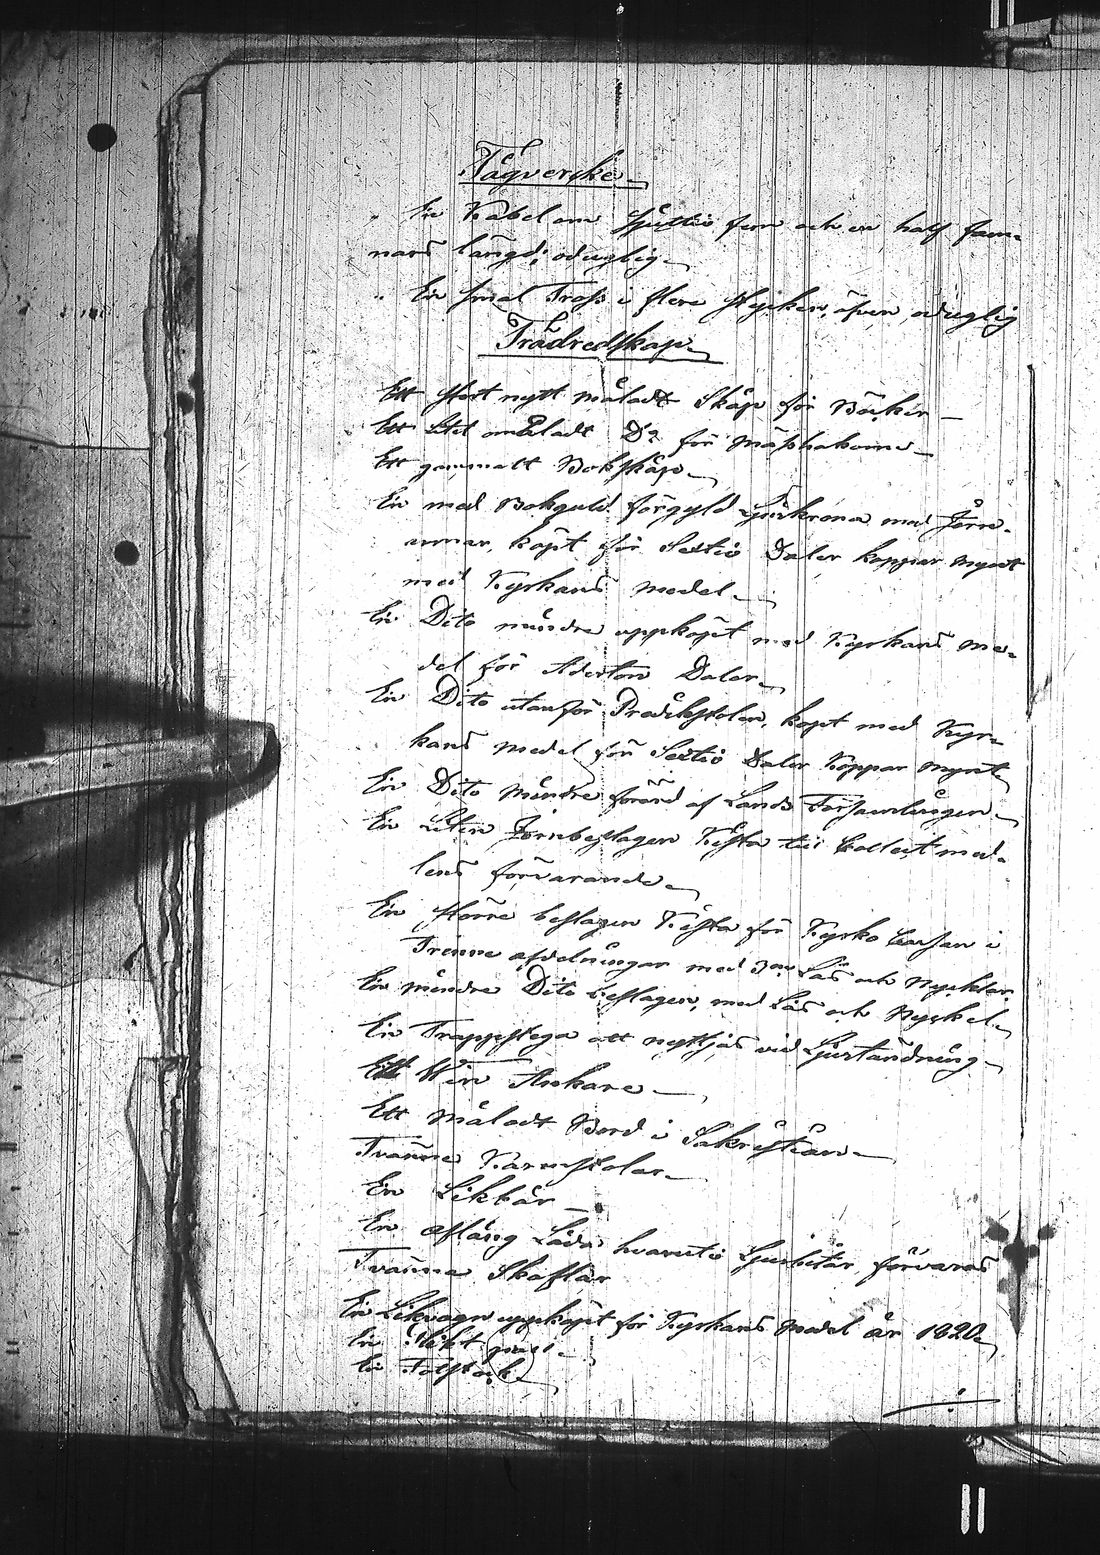 Tågverke
" En Kabel om Sjuttio fem och en half fam-
nars längd; oduglig
" En smal Tross i flere stycken, äfven oduglig
Trädredskap
Ett stort nytt måladt Skåp för Böcker
Ett Litet omåladt D:o för Mässhakarne
Ett gammalt Bokskåp
En med Bokguld förgyld Ljuskrona med Jern-
armar, köpt för Sextio Daler koppar mynt
med Kyrkans medel
En Dito mindre uppköpt med Kyrkans me-
del för Aderton Daler
En Dito utanför Predikstolen, köpt med Kyr-
kans medel för Sextio Daler Koppar mynt
En Dito Mindre förärd af Lands Församlingen
En Liten Jernbeslagen Kista till Collect med-
lens förvarande
En större beslagen Kista för Kyrko Cassan i
Trenne afdelningar med 3ne Lås och Nycklar
En mindre Dito beslagen, med Lås och Nyckel
En Trappstega att nyttjas vid Ljuständning
Ett Win Ankare
Ett Måladt Bord i Sakristian
Tvänne Karmstolar
En Likbår
En aflång Låda hvaruti Ljusbitar förvaras
Tvänne Skoflar
En Likvagn uppköpt för Kyrkans Medel år 1820
En
En Fotstock
11